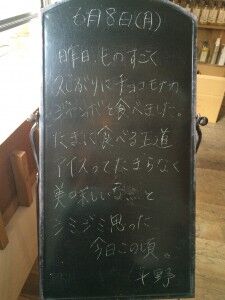 6月8日(月)
昨日、ものすごく
久しぶりにチョコモナカ
ジャンボを食べました。
たまに食べる王道
アイスってたまらなく
美味しいな…と
シミジミ思った
今日この頃。
平野